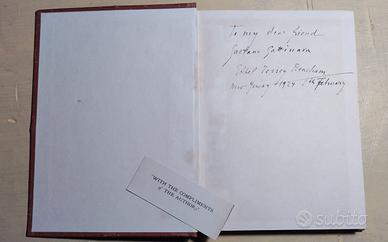 To my dear friend
Gaetano Gattinara
Ethel
New Jersey 1974 7th February
"WITH THE COMPLIMENTS
of THE AUTHOR."
subito